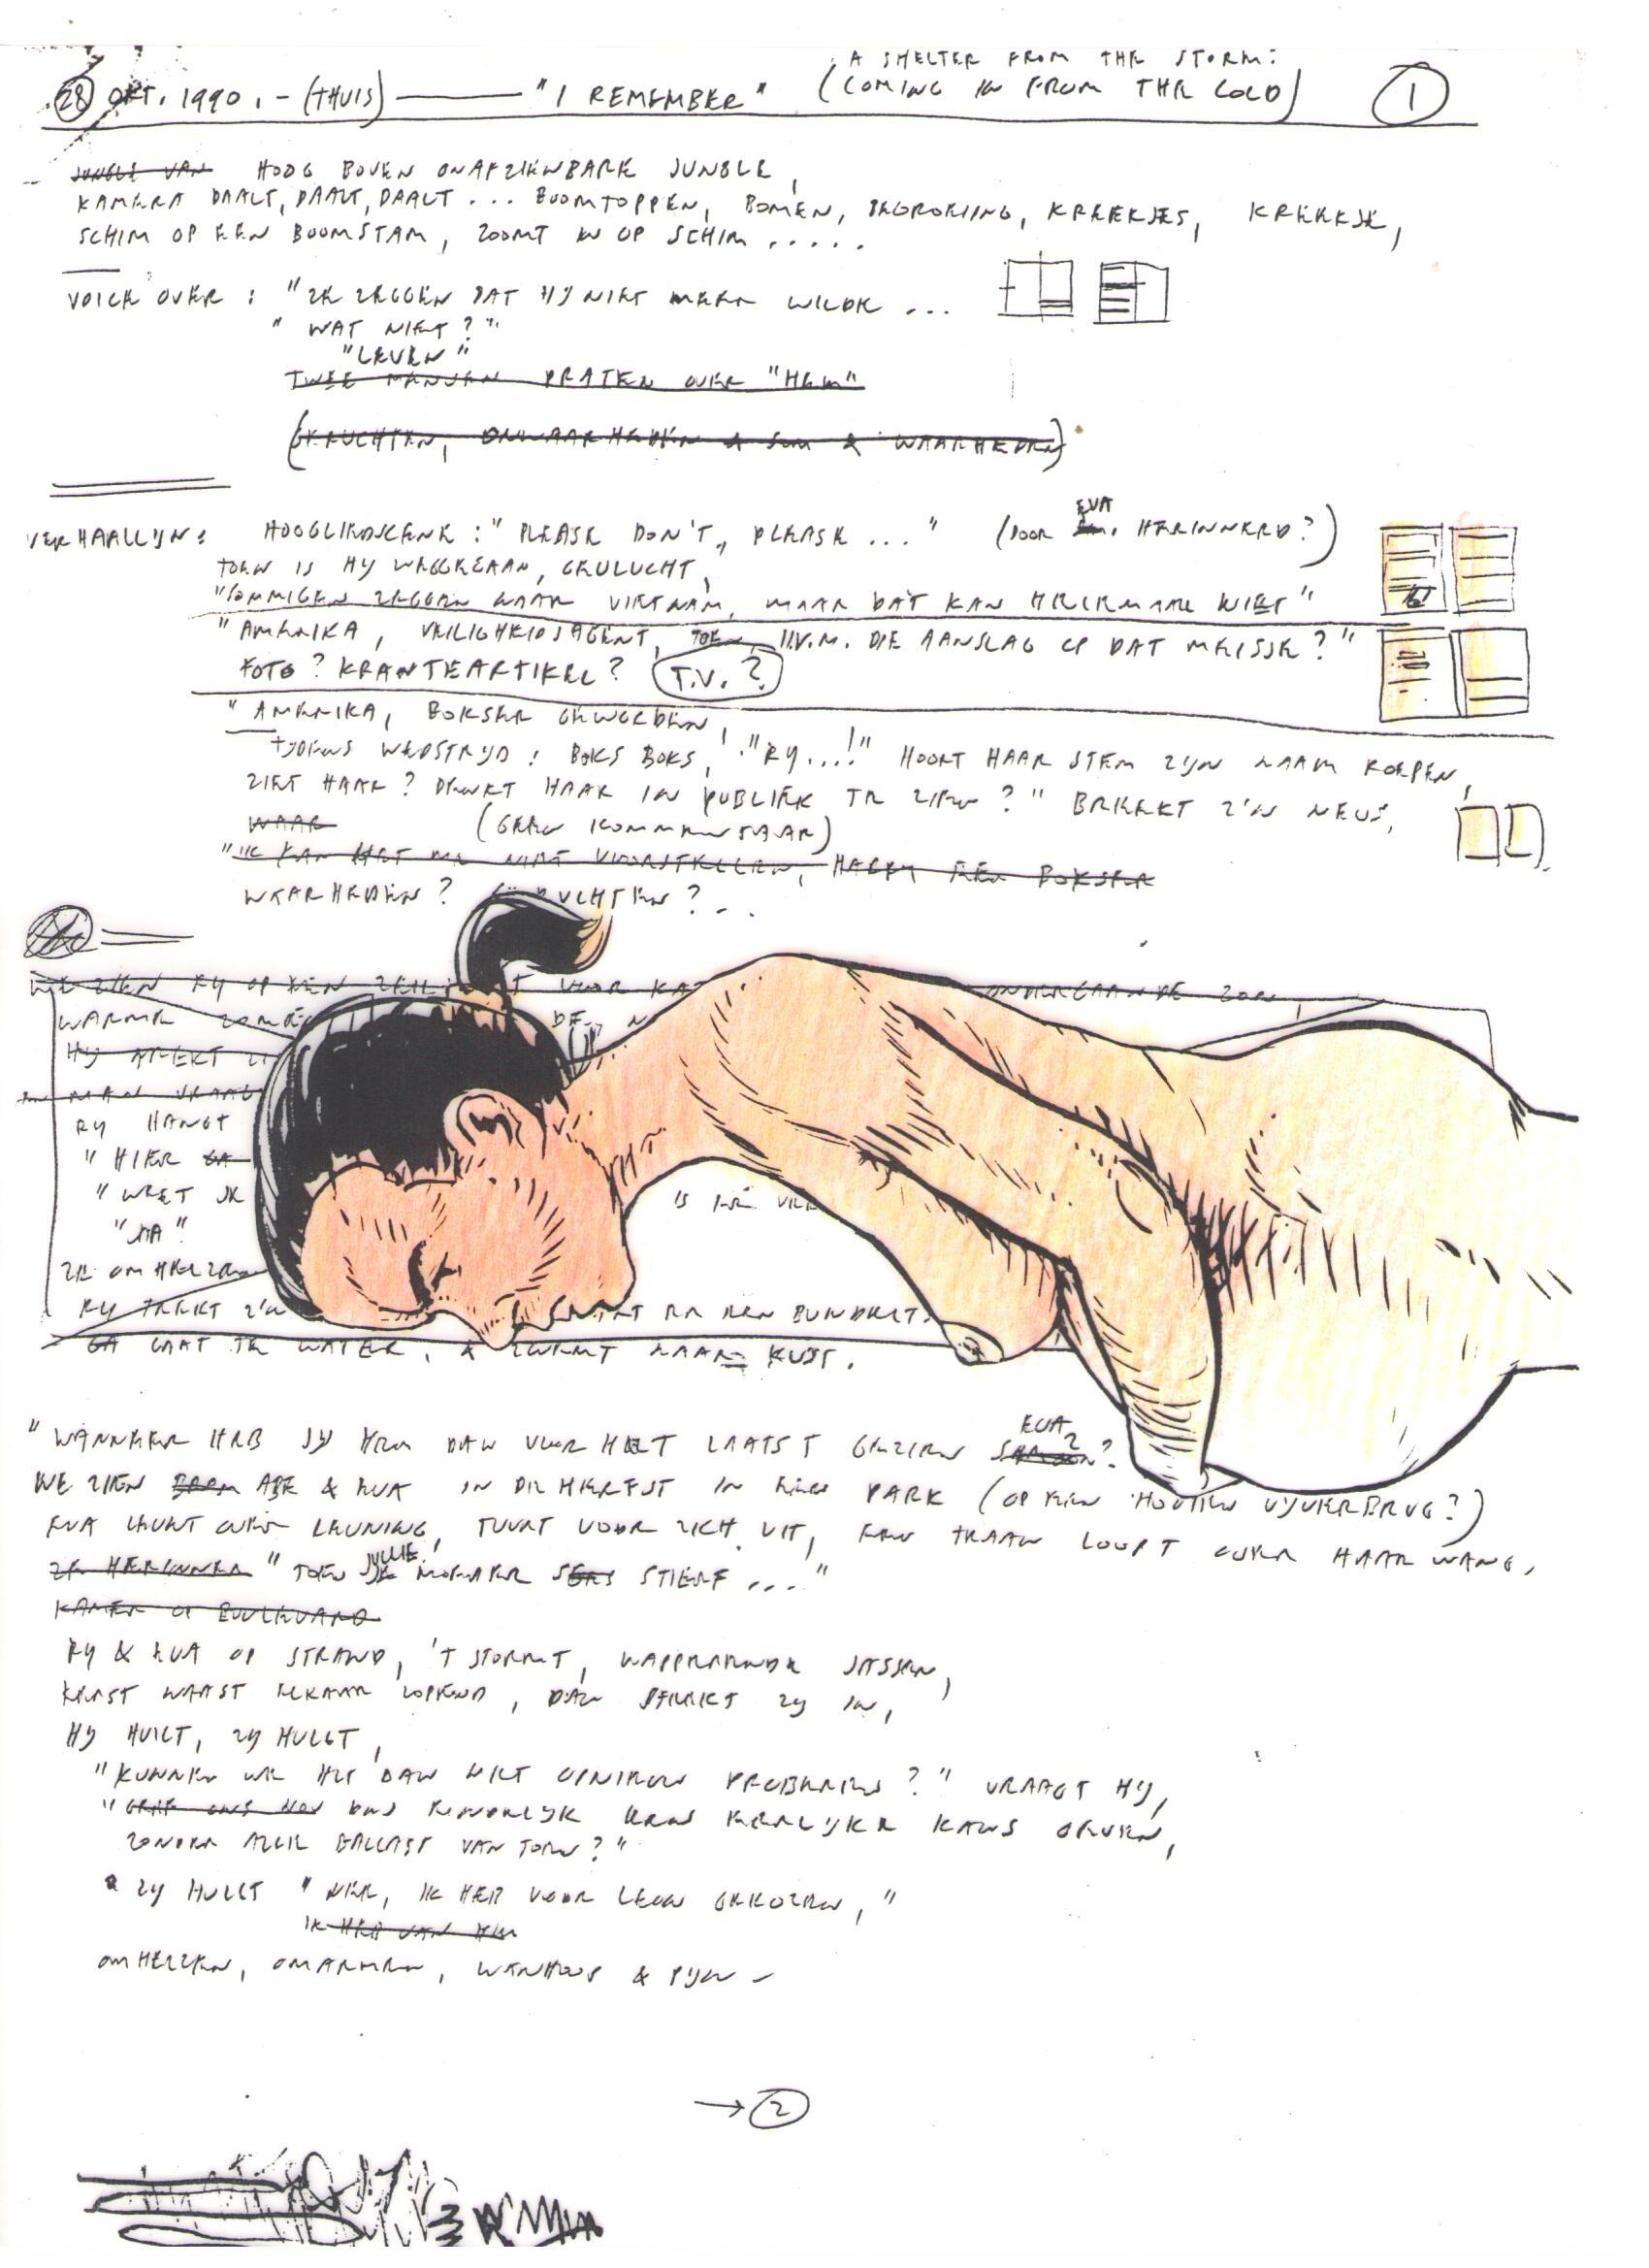 A SHELTER FROM THE STORM:
28 OKT. 1990. - (THUIS) — "I REMEMBER" (COMING IN FROM THE COLD) 1
JUNGLE VAN HOOG BOVEN ONAFZIENBARE JUNGLE,
KAMERA DAALT, DAALT, DAALT... BOOMTOPPEN, BOMEN, BEGROEIING, KREEKJES, KREEKJE,
SCHIM OP EEN BOOMSTAM, ZOOMT IN OP SCHIM.....
VOICE OVER: "ZE ZEGGEN DAT HY NIET MEER WILDE...
"WAT NIET?"
"LEVEN"
TWEE MANNEN PRATEN OVER "HEM"
(GERUCHTEN, ONWAARHEDEN & WAARHEDEN)
VERHAALLIJN: HOOGLIEDSCENE: "PLEASE DON'T, PLEASE..." (DOOR EVA HERINNERD?)
TOEN IS HY WEGGEGAAN, GEVLUCHT,
"SOMMIGEN ZEGGEN NAAR VIETNAM, MAAR DAT KAN HELEMAAL NIET"
"AMERIKA, VEILIGHEIDSAGENT, TOEN, N.V.M. DIE AANSLAG OP DAT MEISJE?"
FOTO? KRANTEARTIKEL? T.V.?
"AMERIKA, BOKSER GEWORDEN,
TYDENS WEDSTRYD: BOKS BOKS, "RY...!" HOORT HAAR STEM ZYN NAAM ROEPEN,
ZIET HAAR? DENKT HAAR IN PUBLIEK TE ZIEN?" BREEKT Z'N NEUS,
WAAR (GEEN KOMMENTAAR)
"IK KAN HET ME NIET VOORSTELLEN, HARRY EEN BOKSER
WAARHEDEN? VCHTEN?...
WE ZIEN RY OP EEN ZEIL T VOOR KA ONDERGAANDE ZON,
WARME ZOME DE N
HY
MAN VRAAG
RY HANGT
"HIER GA
"WEET IK IS EEN
"JA"
ZE OMHELZEN
RY TREKT Z'N EN EEN BUNDELT
GA GAAT TE WATER, & ZWEMT NAAR KUST.
"WANNEER HEB JY HEM DAN VOOR HET LAATST GEZIEN EVA?
WE ZIEN ABE & EVA IN DE HERFST IN EEN PARK (OP EEN HOUTEN VYVERBRUG?)
EVA LEUNT OVER LEUNING, TUURT VOOR ZICH UIT, EEN TRAAN LOOPT OVER HAAR WANG,
ZE HERINNER "TOEN JULLIE MOEDER STIERF..."
KAMER OP BOULEVARD
RY & EVA OP STRAND, 'T STORMT, WAPPERENDE JASSEN,
EERST NAAST ELKAAR LOPEND, DAN STEEKT ZY IN,
HY HUILT, ZY HUILT,
"KUNNEN WE HET DAN NIET OPNIEUW PROBEREN?" VRAAGT HY,
"GEEF ONS NOU ONS EINDELYK EENS EERLYKE KANS GEVEN,
ZONDER ALLE BALLAST VAN TOEN?"
ZY HUILT "NEE, IK HEB VOOR LEON GEKOZEN,"
IK HEB VAN HEM
OMHELZEN, OMARMEN, WANHOOP & PYN -
→ 2